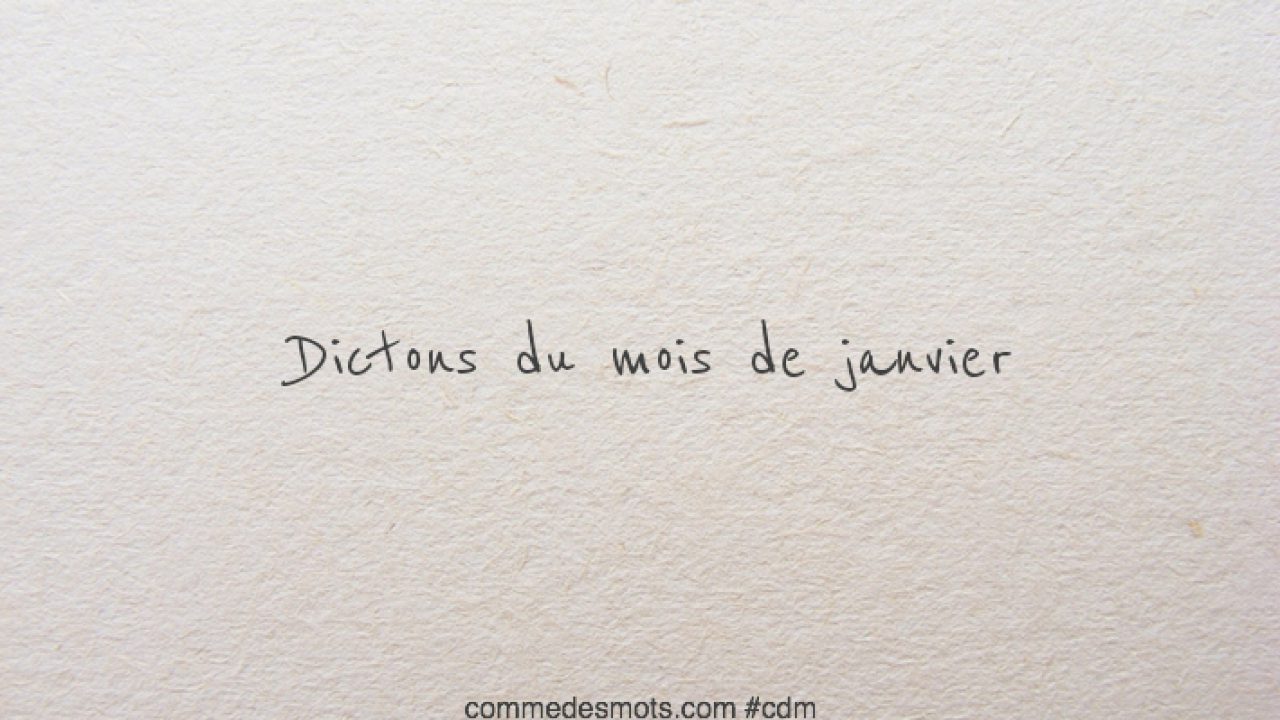 Dictons du mois de janvier
commedesmots.com #cdm